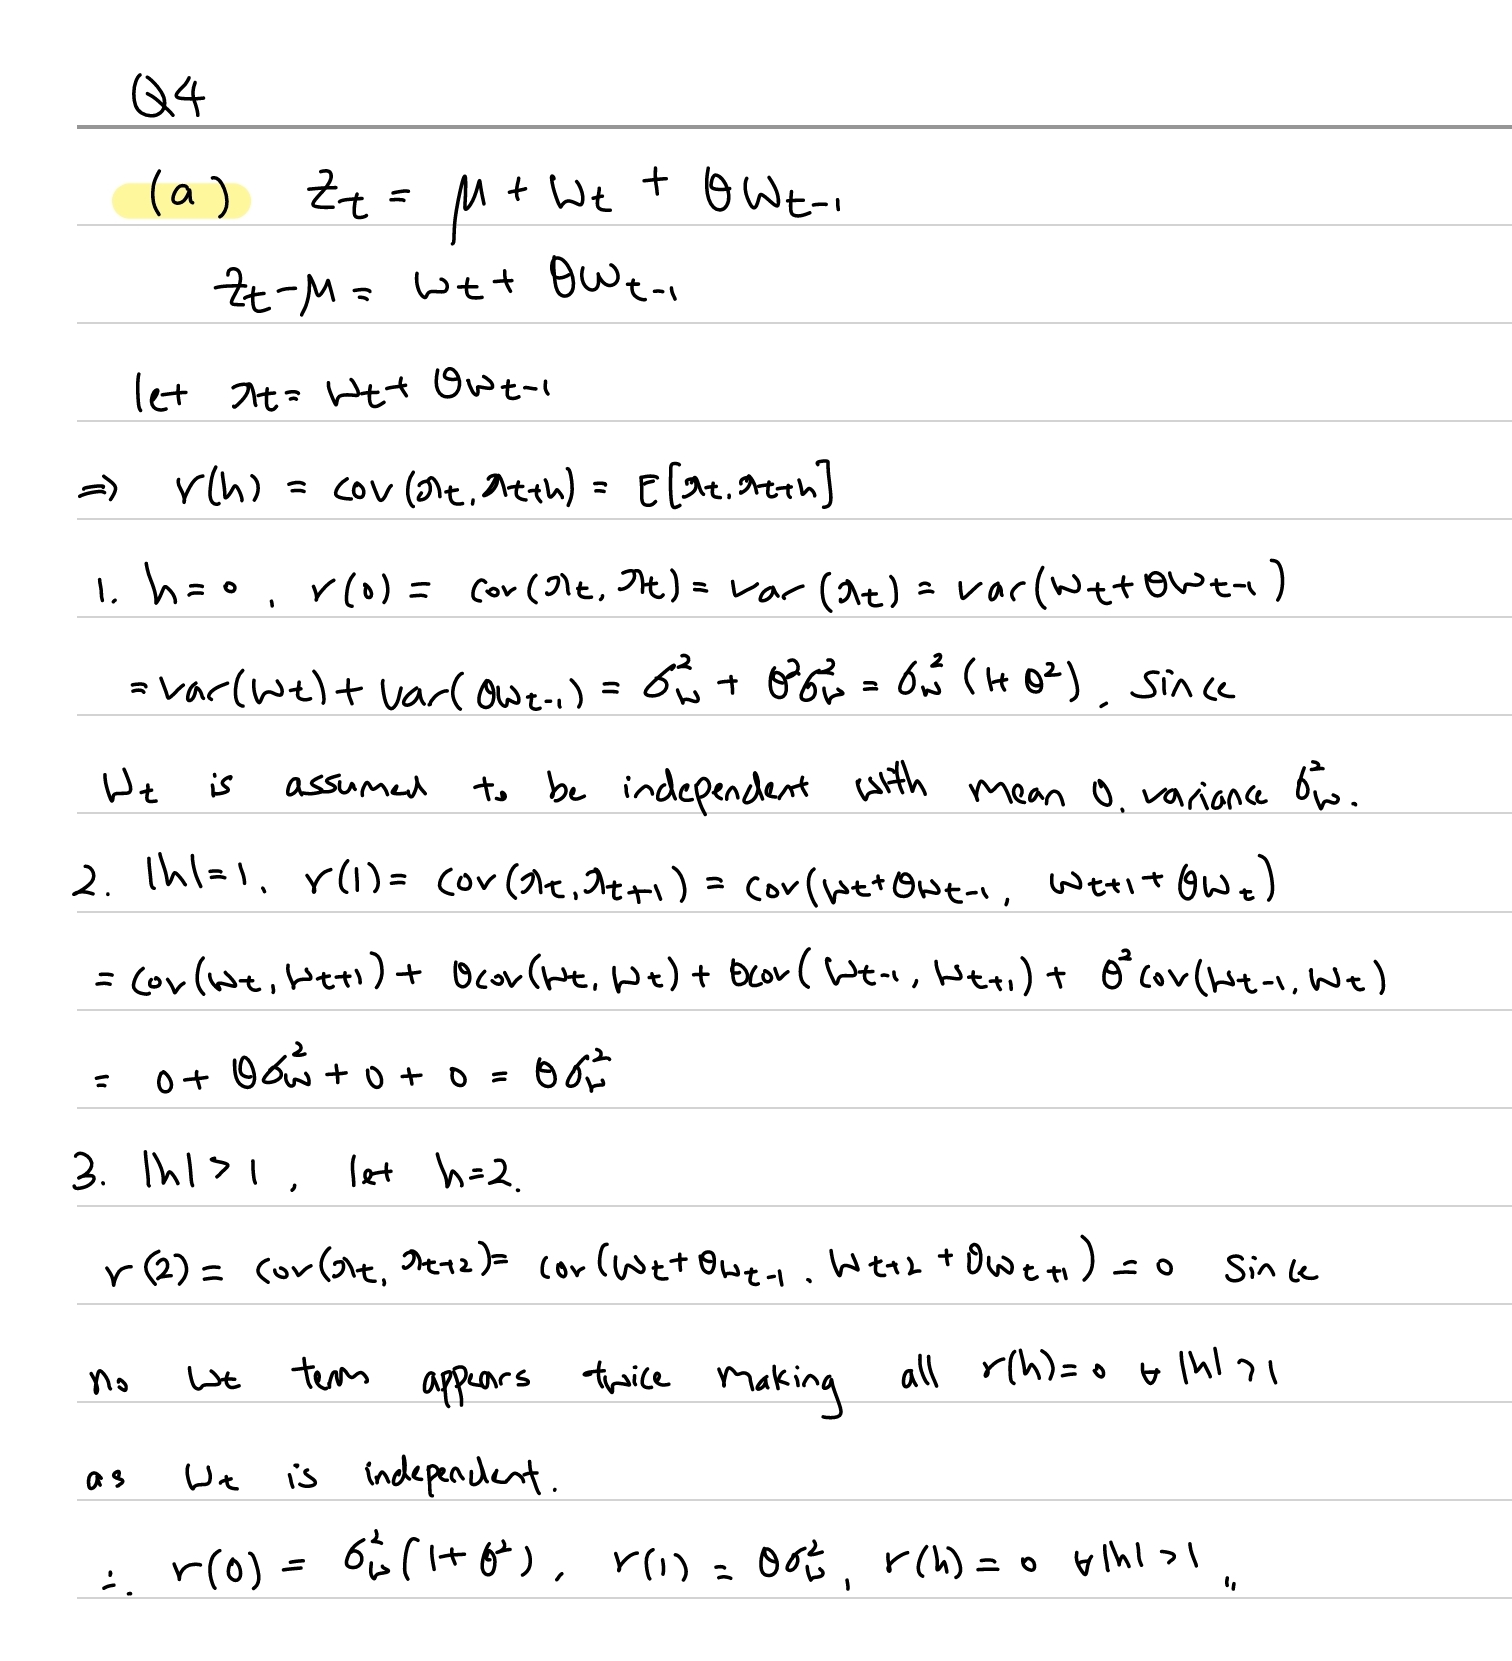 Q4
(a) Zt = μ + Wt + θWt-1
Zt-μ = Wt + θWt-1
let xt = Wt + θWt-1
⇒ r(h) = cov(xt, xt+h) = E[xt.xt+h]
1. h=0, r(0) = cov(xt, xt) = var(xt) = var(Wt+θWt-1)
= var(Wt) + var(θWt-1) = σw² + θ²σw² = σw²(1+θ²), since
Wt is assumed to be independent with mean 0, variance σw².
2. |h|=1, r(1) = cov(xt, xt+1) = cov(Wt+θWt-1, Wt+1+θWt)
= cov(Wt, Wt+1) + θcov(Wt, Wt) + θcov(Wt-1, Wt+1) + θ²cov(Wt-1, Wt)
= 0 + θσw² + 0 + 0 = θσw²
3. |h|>1, let h=2.
r(2) = cov(xt, xt+2) = cov(Wt+θWt-1, Wt+2+θWt+1) = 0 since
no Wt term appears twice making all r(h)=0 ∀ |h|>1
as Wt is independent.
∴ r(0) = σw²(1+θ²), r(1) = θσw², r(h) = 0 ∀|h|>1 〃